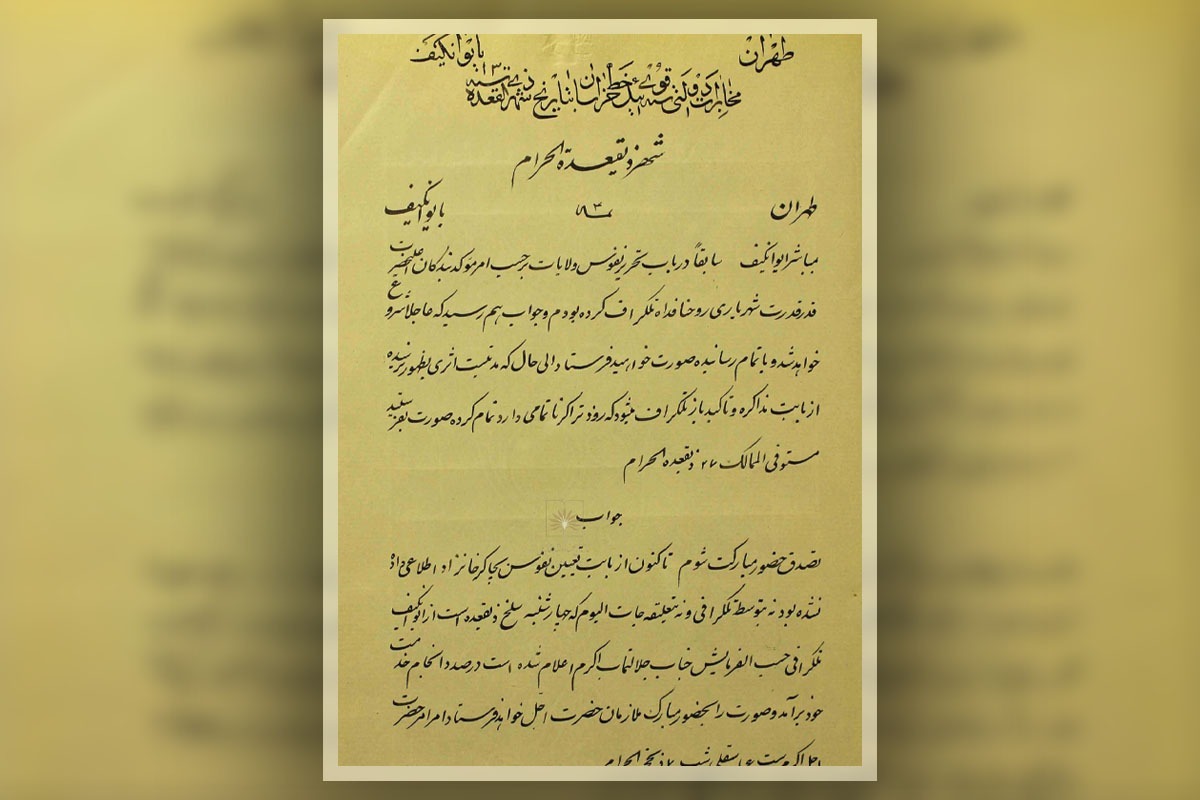 طهران بایوانکیف
مخابرات دولتی سنه قوی ئیل خط خراسان بتاریخ شهر ذی القعده سنه ۱۳
شهر ذیقعدة الحرام
طهران بایوانکیف
مباشر ایوانکیف سابقاً در باب تحریر نفوس ولایات بر حسب امر مؤکد بندگان اعلیحضرت
قدرقدرت شهریاری روحنا فداه تلگراف کرده بودم و جواب هم رسید که عاجلاً شروع
خواهد شد و باتمام رسانیده صورت خواهید فرستاد الی حال که مدتیست اثری بظهور نرسیده
از بابت مذاکره و تاکید باز تلگراف میشود که زودتر اگر ناتمامی دارد تمام کرده صورت بفرستید
مستوفی الممالک ۲۷ ذیقعده الحرام
جواب
تصدق حضور مبارکت شوم تاکنون از بابت تعیین نفوس بچاکر خانزاد اطلاعی داده
نشده بود نه بتوسط تلگرافی و نه بتعلیقه‌جات الیوم که چهارشنبه سلخ ذیقعده است از ایوانکیف
تلگرافی حسب الفرمایش جناب جلالتماب اکرم اعلام شده است درصدد انجام خدمت
خود برآمده صورت را بحضور مبارک ملازمان حضرت اجل خواهد فرستاد امر امر حضرت
اجل اکرم است